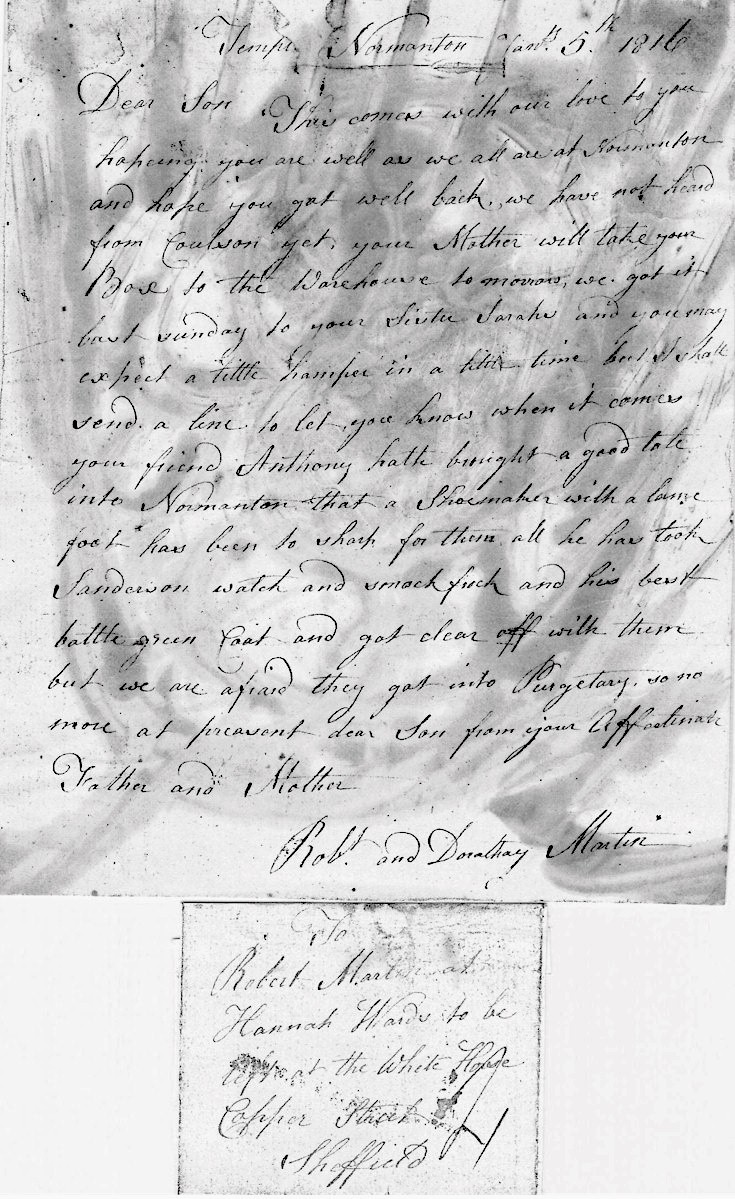 Temple Normanton Jan.y 5.th 1816
Dear Son This comes with our love to you
hopeing you are well as we all are at Normanton
and hope you got well back. we have not heard
from Coulson yet. your Mother will take your
Box to the Warehouse to morrow, we got it
last sunday to your Sister Sarahs and you may
expect a little hamper in a little time but I shall
send a line to let you know when it comes
your friend Anthony hath brought a good tale
into Normanton that a Shoemaker with a lame
foot has been to sharp for them all he has took
Sanderson watch and smockfrock and his best
battle green Coat and got clear off with them
but we are afraid they got into Purgetary. so no
more at preasent dear Son from your Affectinate
Father and Mother
Rob.t and Dorathay Martin
To
Robert Martin at
Hannah Wards to be
left at the White Horse
Copper Street
Sheffield